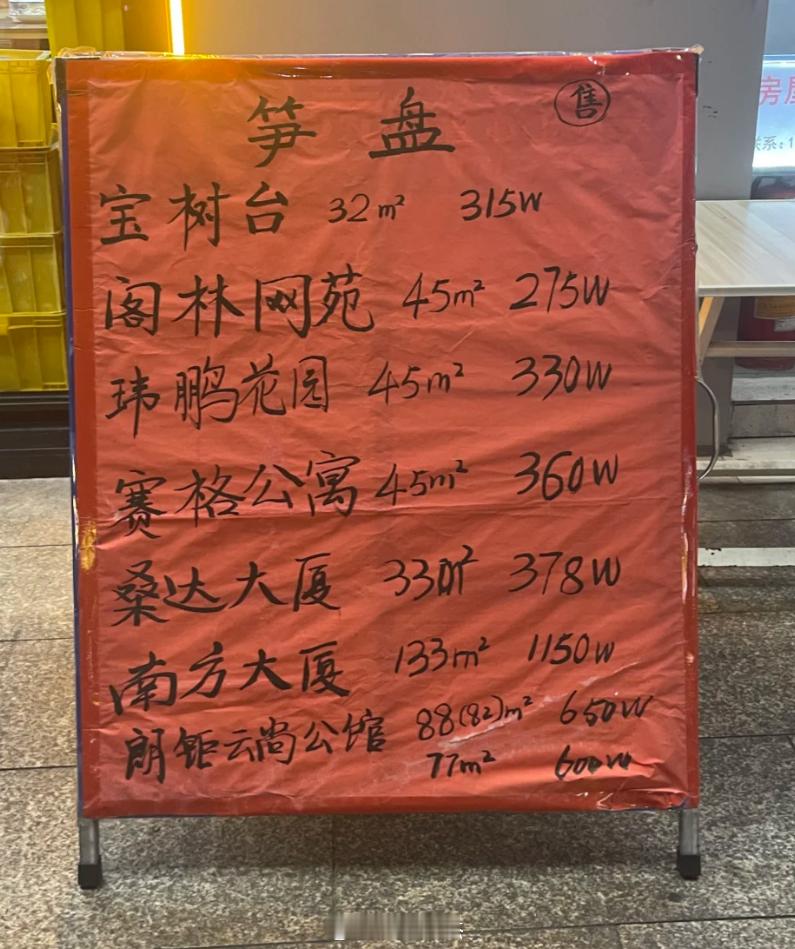 笋盘 售
宝树台 32m² 315W
阁林网苑 45m² 275W
玮鹏花园 45m² 330W
赛格公寓 45m² 360W
桑达大厦 33m² 378W
南方大厦 133m² 1150W
朗钜云尚公馆 88(82)m² 650W
77m² 600W
房屋
联系:1